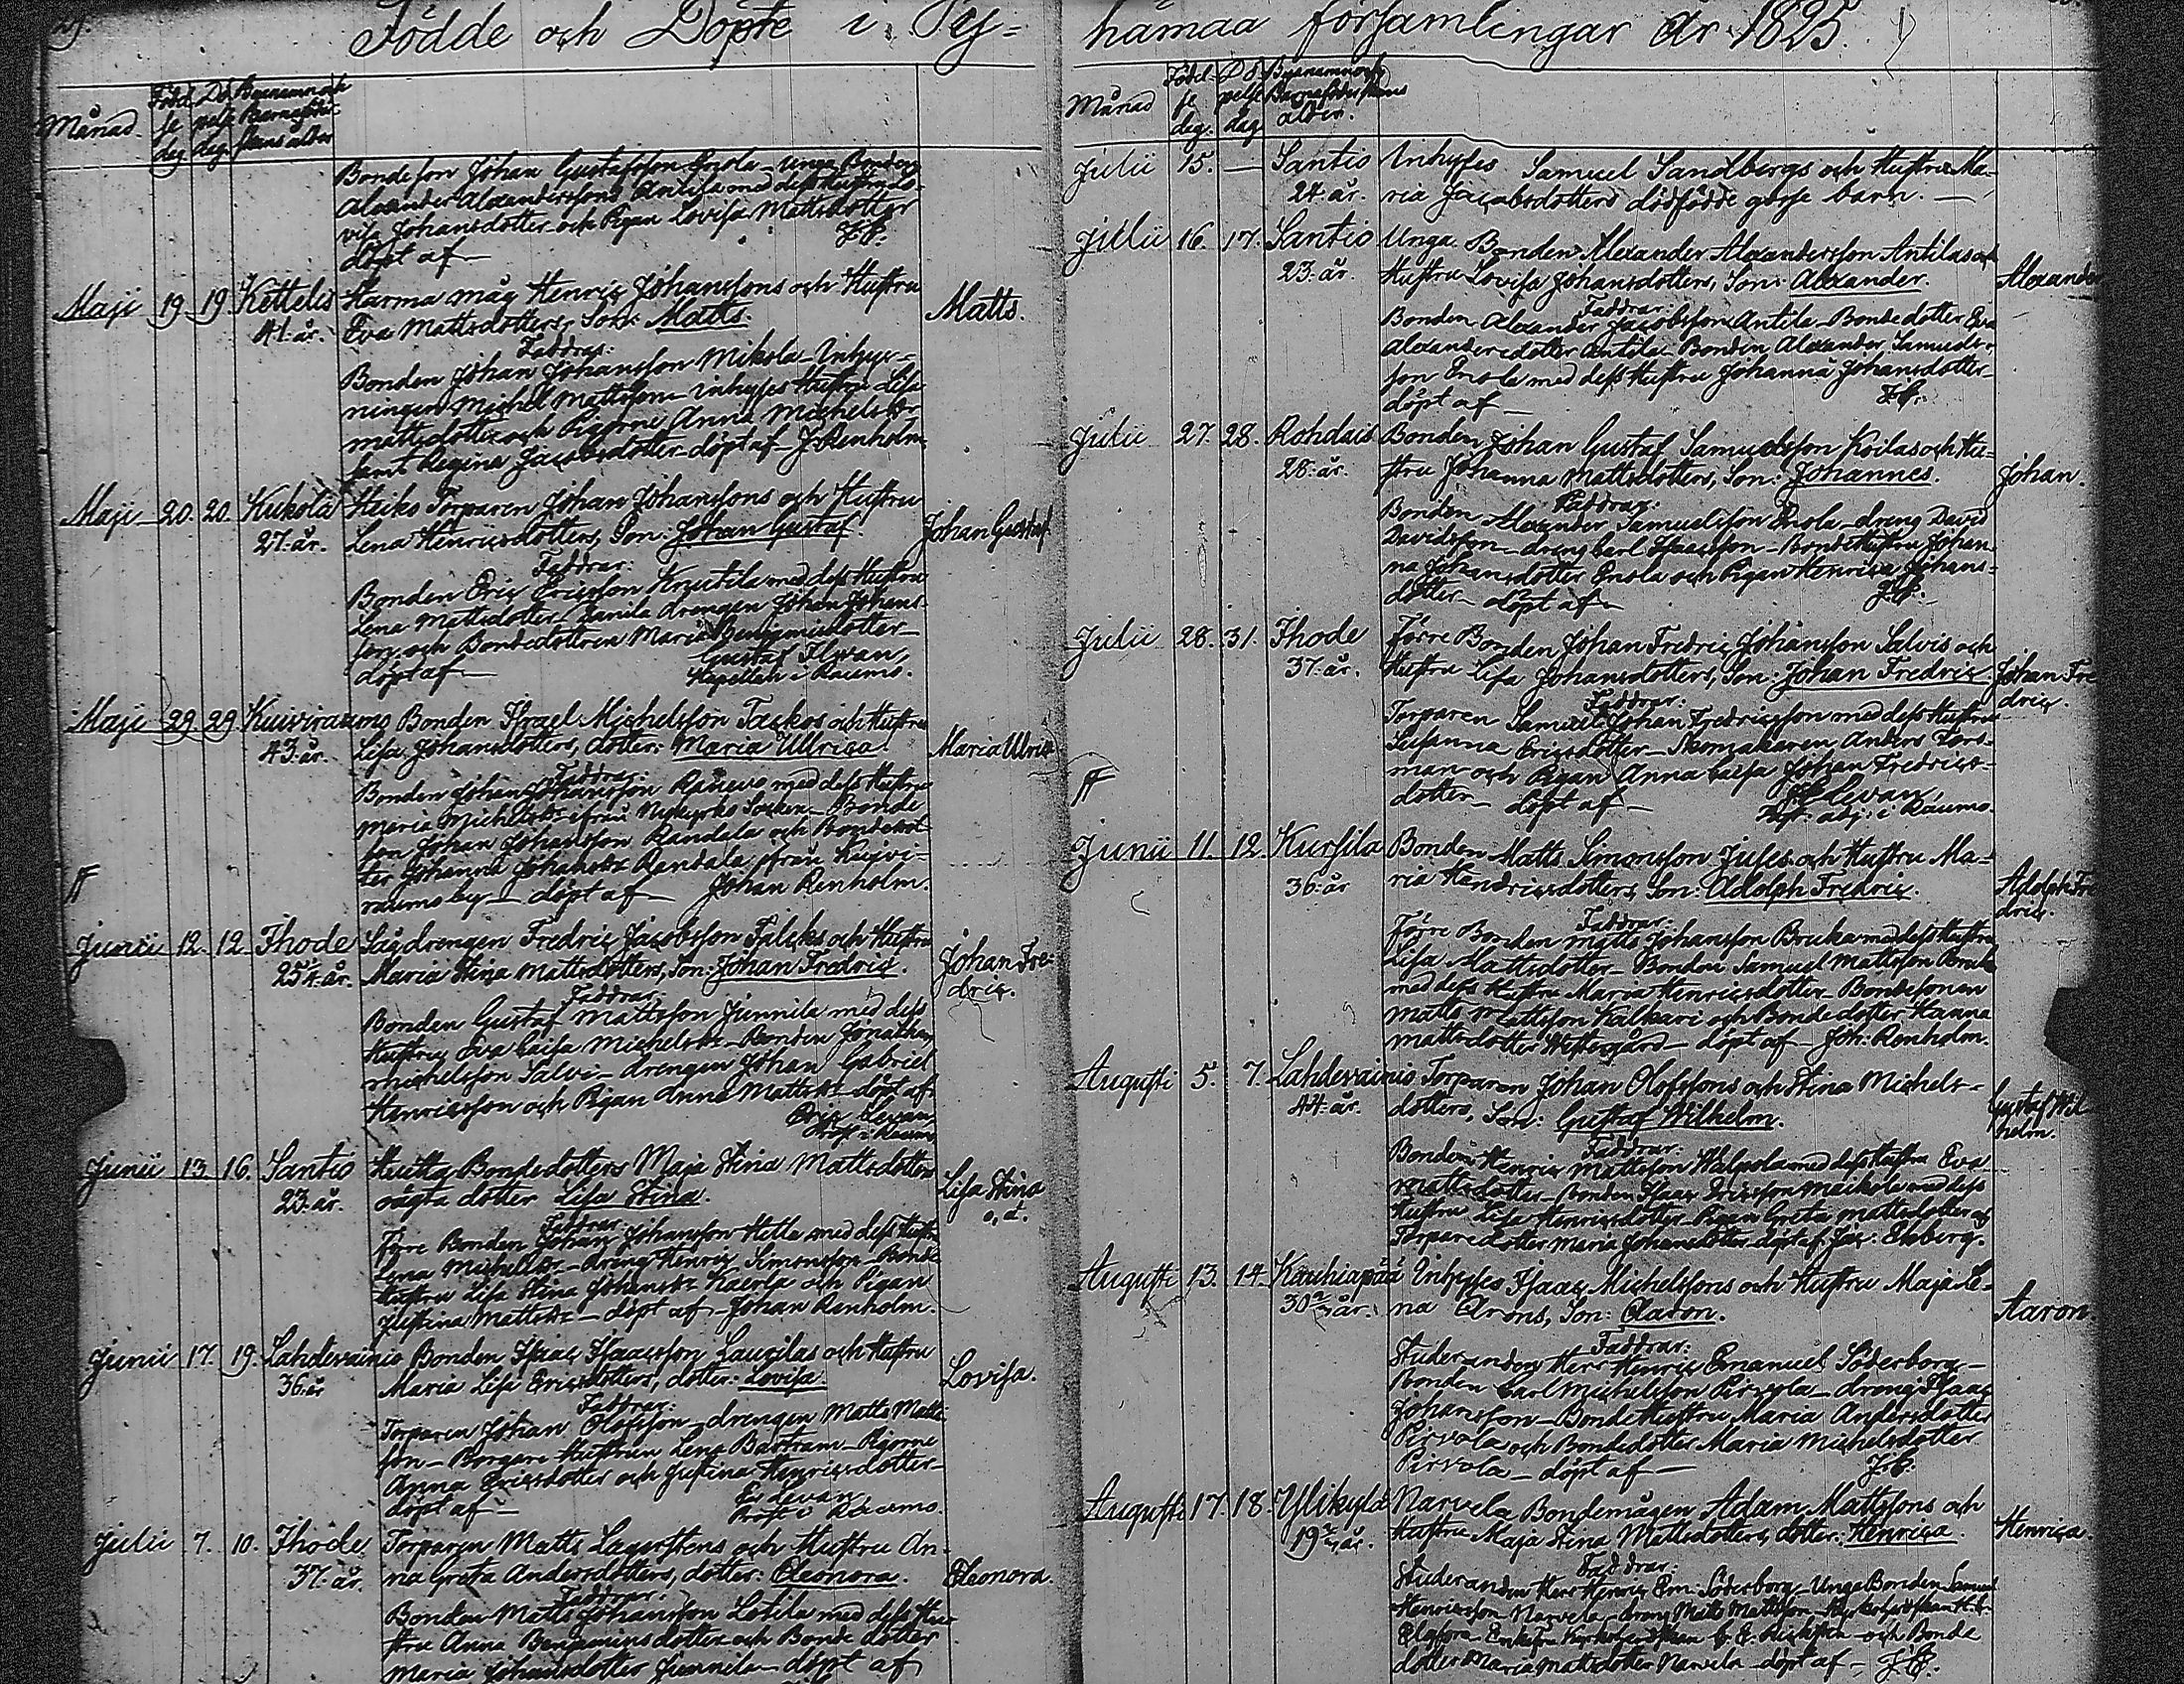 29.
Födde och Döpte i Py=
Månad. Född. Dö Byenamn och
se pelse Barnaföder=
dag dag. skans ålder
Bondeson Johan Gustafsson Ensola unga Bonden
Alexander Alexanderssons Antila med dess Hustru Lo-
visa Johansdotter och Pigan Lovisa Mattsdotter
döpt af J.E.
Maji 19 19 Kettelis Harma måg Henric Johanssons och Hustru Matts.
41. år. Eva Mattsdotters Son: Matts.
Faddrar:
Bonden Johan Johansson Mikola - Inhyse=
ningen Michel Mattsson - inhyses Hustru Lisa
mattsdotter och Pigorne Anna Michelsdr
samt Regina Jacobsdotter - döpt af J. Renholm.
Maji 20. 20. Kukola Heiks Torparen Johan Johanssons och Hustru Johan Gustaf
27. år. Lena Henricsdotters, Son: Johan Gustaf.
Faddrar:
Bonden Eric Ericsson Knutila med dess Hustru
Lena Mattsdotter, drengen Johan Johans-
son, och Bondedottren Maria
döpt af Gustaf Elgvan,
Kapellan i Raumo.
Maji 29 29 Kuiviraumo Bonden Israel Michelsson Taskos och Hustru Maria Ulrica
43. år. Lisa Johansdotters, dotter: Maria Ullrica
Faddrar:
Bonden Johan Johansson med dess Hustru
Maria Michelsdr ifrån Nykyrko Socken - Bonde
son Johan Johansson Randala och Bondedot-
ter Johanna Johansdr Randala från Kuivi=
raumo by - döpt af Johan Renholm.
Junii 12. 12 Ihode Sågdrengen Fredric Jacobsson Falcks och Hustru Johan Fre-
25 ¼ år. Maria Stina Mattsdotters, Son: Johan Fredric. dric.
Faddrar:
Bonden Gustaf Mattsson Junnila med dess
Hustru Eva Caisa Michelsdr - Bonden Jonathan
Michelsson Salvi - drengen Johan Gabriel
Henricsson och Pigan Anna Mattsdr - döpt af
Eric Levan,
Prost i Raumo
Junii 13. 16. Santio Bondedotters Maja Stina Mattsdotters Lisa Stina
23. år. oägta dotter Lisa Stina. o, ä.
Faddrar:
Förre Bonden Johan Johansson Helle med dess Hustru
Lena Michelsdr - dreng Henric Simonsson - Bonde
Hustru Lisa Stina Johansdr och Pigan
Justina Mattsdr - döpt af Johan Renholm.
Junii 17. 19. Lahdevainio Bonden Isaac Isaacsson Laurilas och Hustru Lovisa.
36. år Maria Lisa Ericsdotters, dotter: Lovisa.
Faddrar:
Torparen Johan Olofsson - drengen Matts Matts
son - Borgare Hustrun Lena Bartram - Pigorne
Anna Ericsdotter och Justina Henricsdotter-
döpt af E. Levan,
Prost i Raumo.
Julii 7. 10. Ihode Torparen Matts Lagerstens och Hustru An- Eleonora.
37. år. na Greta Andersdotters, dotter: Eleonora.
Faddrar:
Bonden Matts Johansson Lotila med dess Hus
tru Anna Benjaminsdotter och Bonde dotter
Maria Johansdotter Junnila - döpt af
hämaa församlingar År 1825.
Månad Född- Dö- Byenamn och
se pelse Barnaföderskans
dag. dag ålder.
Julii 15. — Santio Inhyses Samuel Sandbergs och Hustru Ma-
24. år. ria Jacobsdotters dödfödde gosse barn. —
Julii 16. 17. Santio Unga Bonden Alexander Alexandersson Antilas och Alexander
23. år. Hustru Lovisa Johansdotters, Son: Alexander.
Faddrar:
Bonden Alexander Jacobsson Antila - Bondedotter Eva
Alexandersdotter Antila - Bonden Alexander Samuels-
son Ensola med dess Hustru Johanna Johansdotter-
döpt af — J.E.
Julii 27. 28. Rohdais Bonden Johan Gustaf Samuelsson Koilas och Hu- Johan.
28. år. stru Johanna Mattsdotters, Son: Johannes.
Faddrar:
Bonden Alexander Samuelsson Ensola - dreng David
Davidsson - dreng Carl Isaacsson - Bonde Hustru Johan-
na Johansdotter Ensola och Pigan Henrica Johans-
dotter - döpt af J.E.
Julii 28. 31. Ihode Förre Bonden Johan Fredric Johansson Salvis och Johan Fre
37. år. Hustru Lisa Johansdotters, Son: Johan Fredric dric.
Faddrar:
Torparen Samuel Johan Fredricsson med dess Hustru
Susanna Ericsdotter - Skomakaren Anders Fors-
man och Pigan Anna Caisa Johan Fredrics-
dotter - döpt af - Levan,
adj: i Raumo.
Junii 11. 12. Kursila Bonden Matts Simonsson Juses och Hustru Ma- Adolph Fre
36. år ria Hendricsdotters, Son: Adolph Fredric. dric.
Faddrar:
Förre Bonden Matts Johansson Bruka med dess Hustru
Lisa Mattsdotter - Bonden Samuel Mattsson Bruka
med dess Hustru Maria Henricsdotter - Bondesonen
Matts Mattsson Kalkari och Bonde dotter Hanna
Mattsdotter Westergård - döpt af Joh: Renholm.
Augusti 5. 7. Lahdevainio Torparen Johan Olofssons och Stina Michels- Gustaf Wil
44. år. dotters, Son: Gustaf Wilhelm. helm.
Faddrar:
Bonden Henric Mattsson Walpola med dess Hustru Eva
Mattsdotter - Bonden Isaac Ericsson Maikola med dess
Hustru Lisa Henricsdotter - Pigan Greta Mattsdotter och
Torparedotter Maria Johansdotter - döpt af Jac: Ekberg.
Augusti 13. 14. Kauhiapää Inhyses Isaac Michelssons och Hustru Maja Le- Aaron.
30 år. na Arons, Son: Aaron.
Faddrar:
Studeranden Herr Henric Emanuel Söderborg -
Bonden Carl Michelsson Pirvola - dreng Isaac
Johansson - Bonde Hustru Maria Andersdotter
Pirvola och Bondedotter Maria Michelsdotter
Pirvola - döpt af — J.E.
Augusti 17. 18. Ylikylä Narvela Bondemågen Adam Mattssons och Henrica.
19 år. Hustru Maja Stina Mattsdotters, dotter: Henrica.
Faddrar:
Studeranden Herr Henric Em. Söderborg - Unga Bonden Samuel
Henricsson Narvela - dreng Matts Mattsson -
och Bonde
dotter Maria Mattsdotter Narvela - döpt af - J.E.